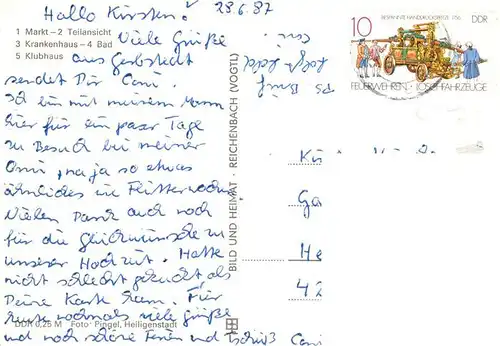 Hallo Kirsten! 28.6.87
1 Markt – 2 Teilansicht
3 Krankenhaus – 4 Bad
5 Klubhaus
Viele Grüße
aus Gerbstedt
sendet Dir Coni.
Ich bin mit meinem Mann
hier für ein paar Tage
zu Besuch bei meiner
Omi, na ja so etwas
ähnliches wie Flitterwochen
Vielen Dank auch noch
für die Glückwünsche zu
unserer Hochzeit. Hatte
nicht schlecht geguckt als
Deine Karte kam. Für
heute nochmals viele Grüße
und noch schöne Ferien und Tschüß Coni
DDR 0,25 M Foto: Pingel, Heiligenstadt
BILD UND HEIMAT · REICHENBACH (VOGTL)
PS Brief
folgt bald
10
BESPANNTE HANDDRUCKSPRITZE 1756
DDR
FEUERWEHREN · LÖSCHFAHRZEUGE
Ki
Ga
He
42